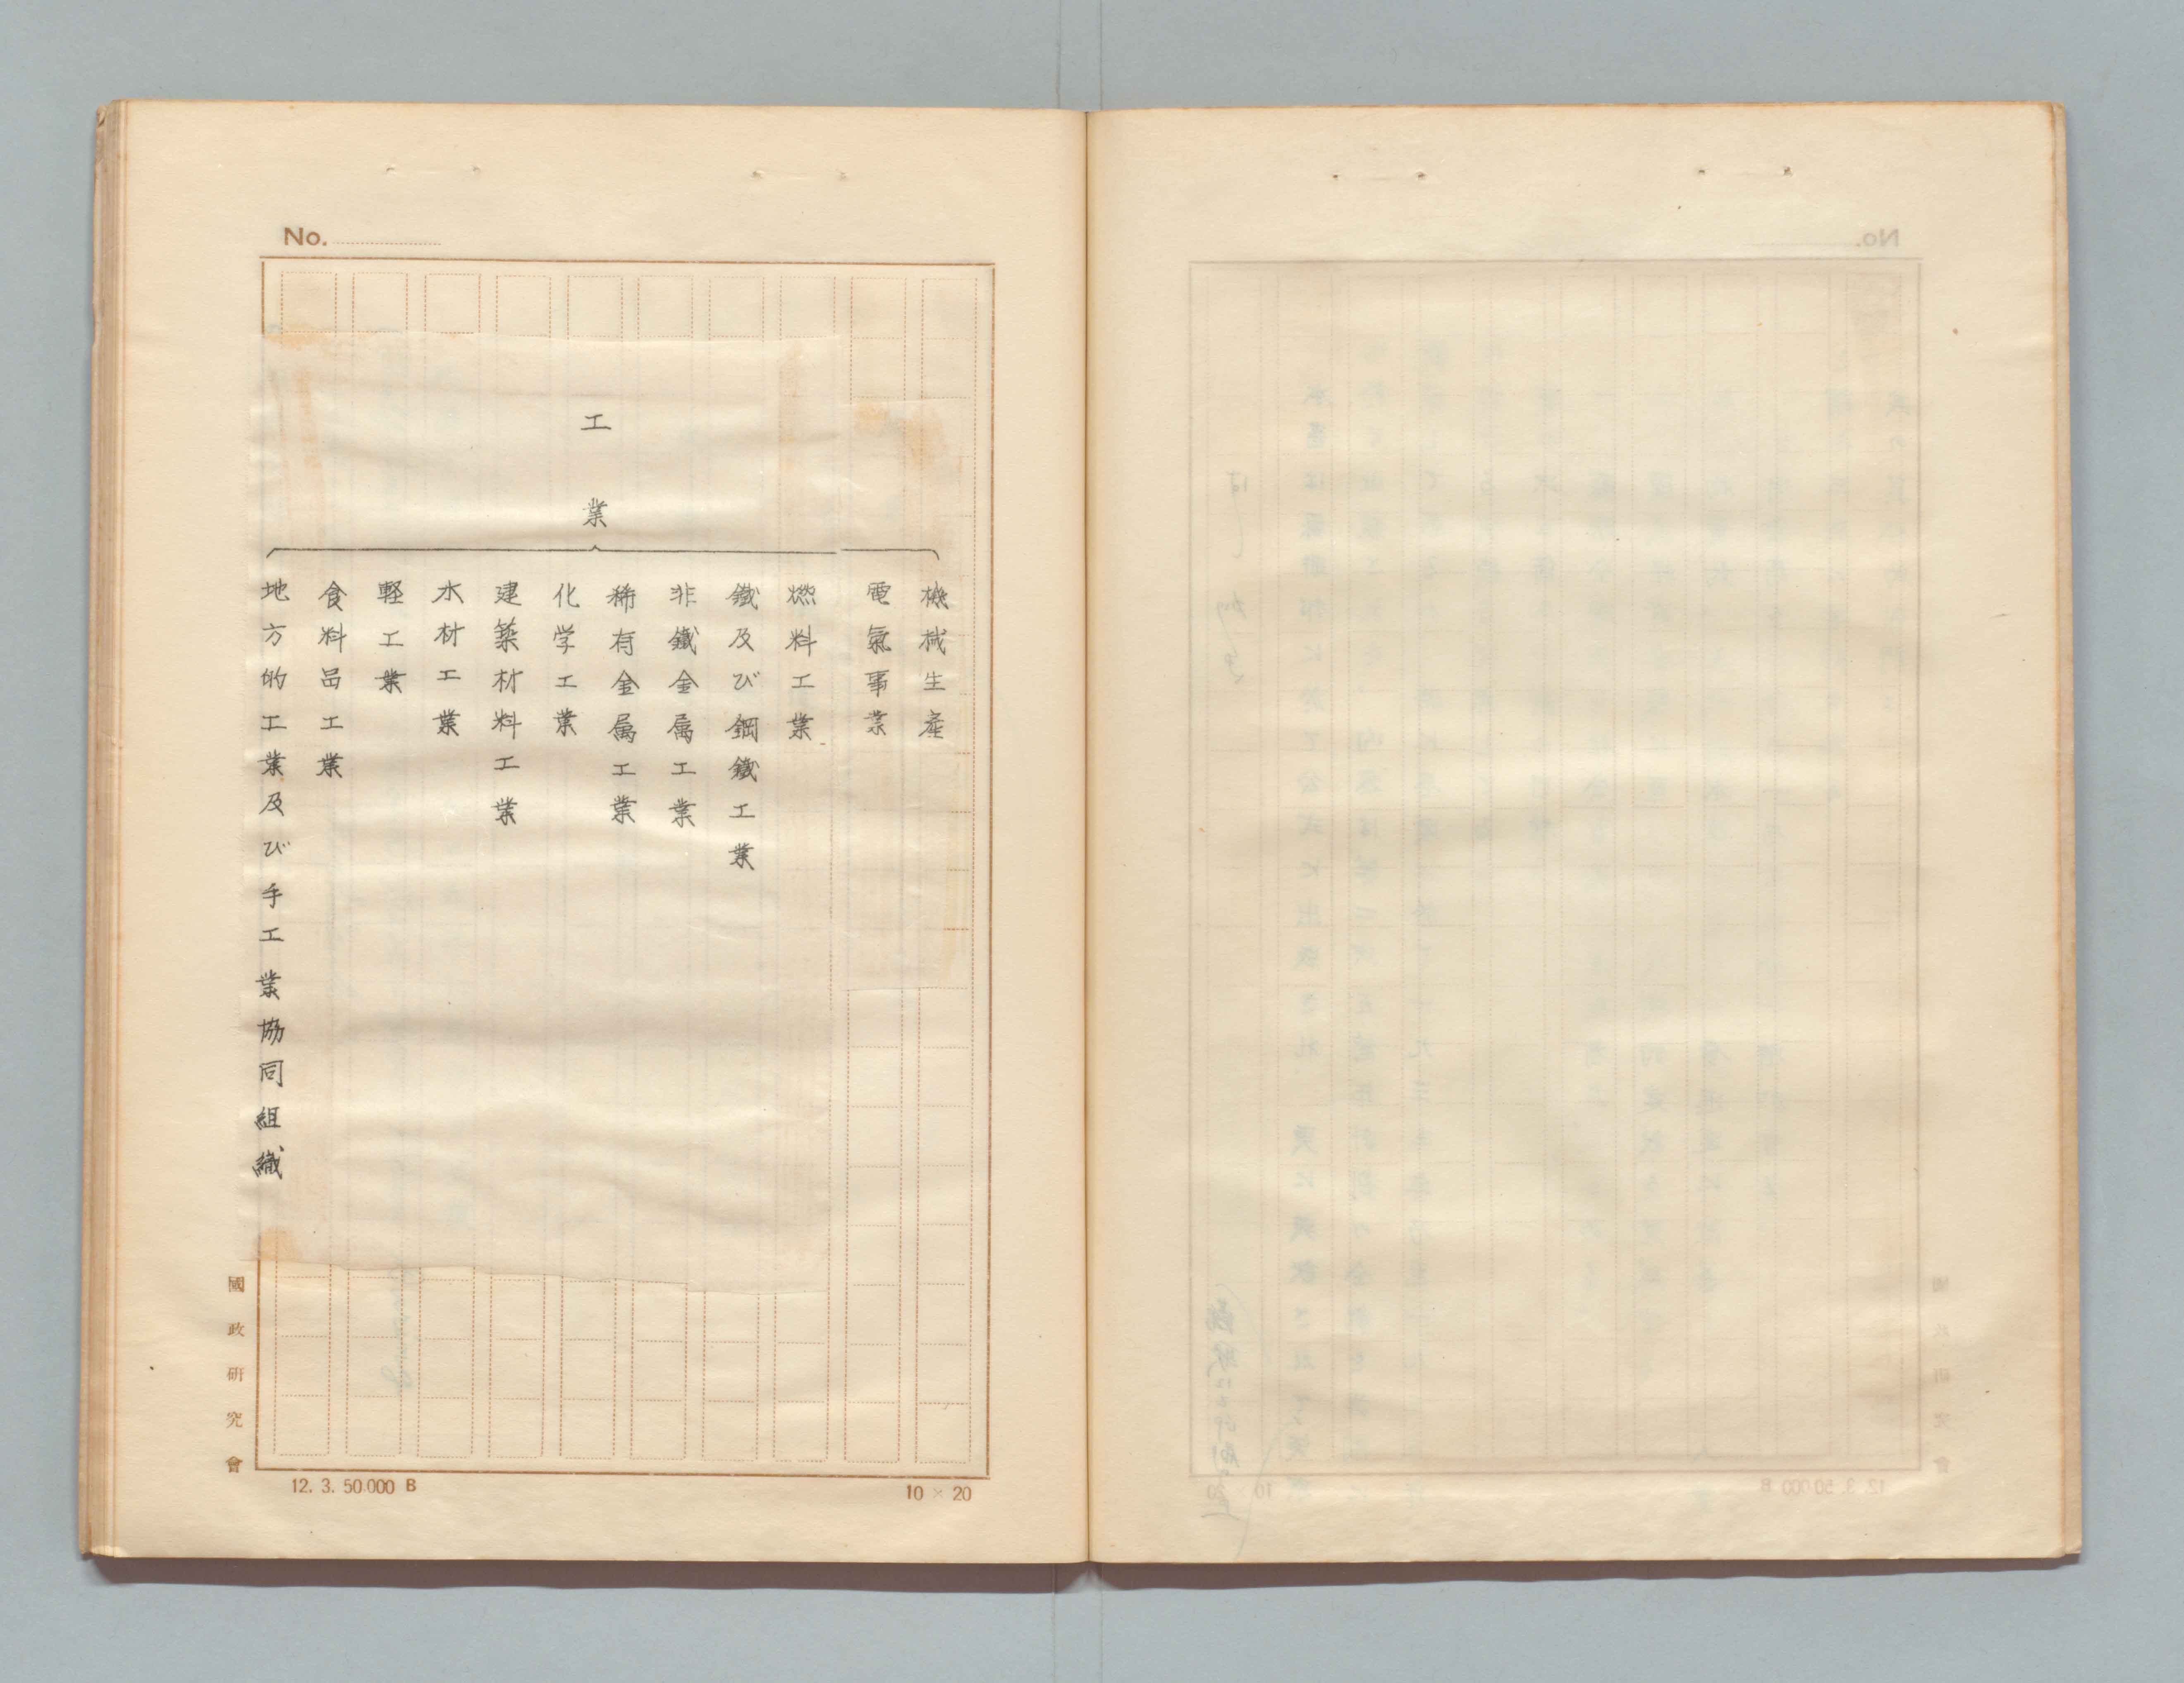 No.
工業
機械生産
電氣事業
燃料工業
鐵及び鋼鐵工業
非鐵金属工業
稀有金属工業
化学工業
建築材料工業
木材工業
軽工業
食料品工業
地方的工業及び手工業協同組織
國政研究會
12. 3. 50.000 B
10 × 20